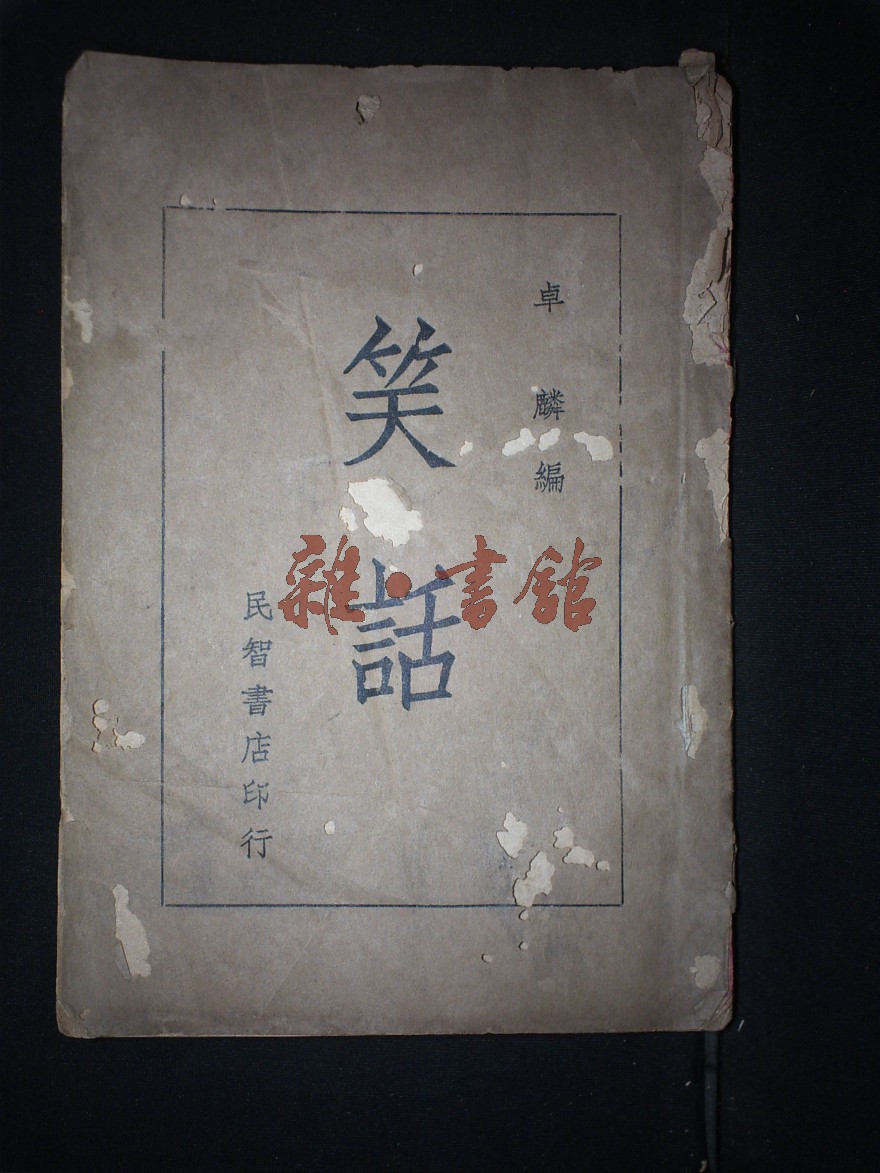 卓麟編
笑話
民智書店印行
雜·書館